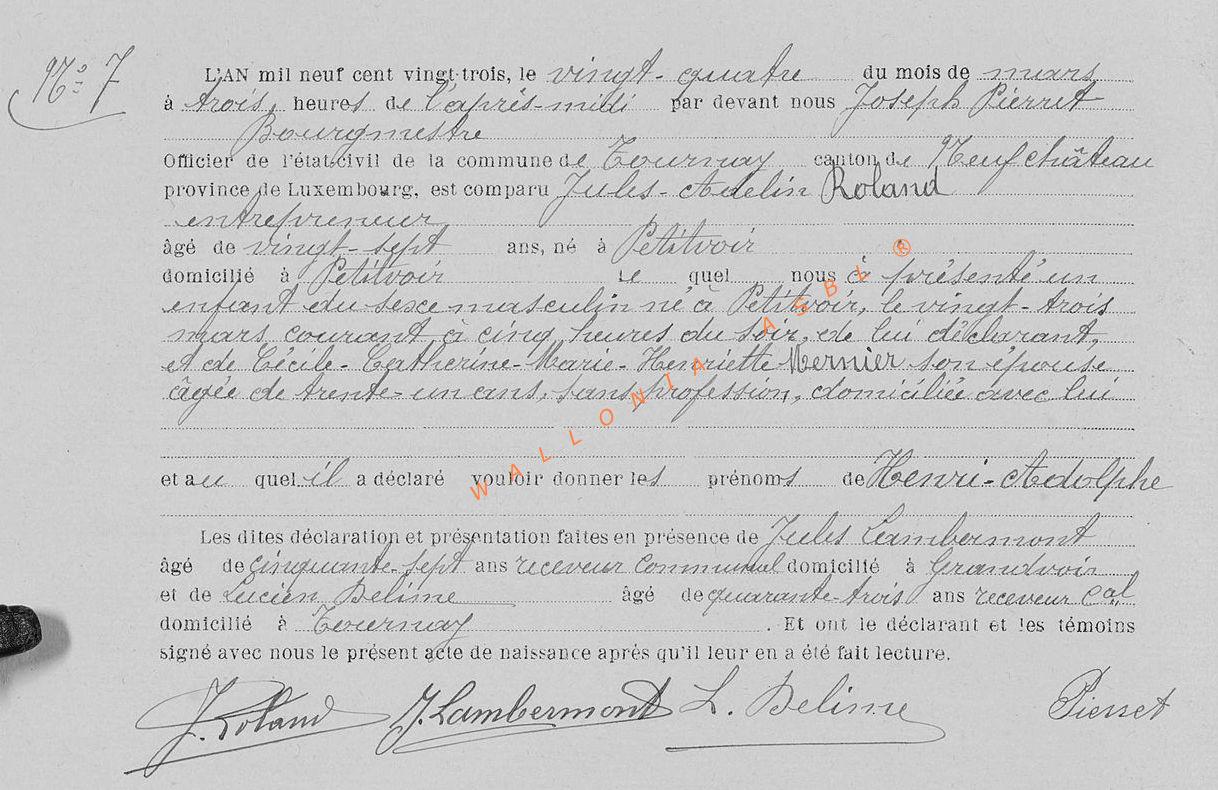 N° 7
L'AN mil neuf cent vingt-trois, le vingt-quatre du mois de mars
à trois, heures de l'après-midi par devant nous Joseph Pierret
Bourgmestre
Officier de l'état-civil de la commune de Tournay canton de Neufchâteau
province de Luxembourg, est comparu Jules-Adelin Roland
entrepreneur
âgé de vingt-sept ans, né à Petitvoir
domicilié à Petitvoir le quel nous à présenté un
enfant du sexe masculin né à Petitvoir, le vingt-trois
mars courant à cinq heures du soir, de lui déclarant,
et de Cécile-Catherine-Marie-Henriette Mernier son épouse
âgée de trente-un ans, sans profession, domiciliée avec lui
et au quel il a déclaré vouloir donner les prénoms de Henri-Adolphe
Les dites déclaration et présentation faites en présence de Jules Lambermont
âgé de cinquante-sept ans receveur communal domicilié à Grandvoir
et de Lucien Belime âgé de quarante-trois ans receveur cal
domicilié à Tournay . Et ont le déclarant et les témoins
signé avec nous le présent acte de naissance après qu'il leur en a été fait lecture.
J. Roland J. Lambermont L. Belime Pierret
WALLONIA ASBL ®